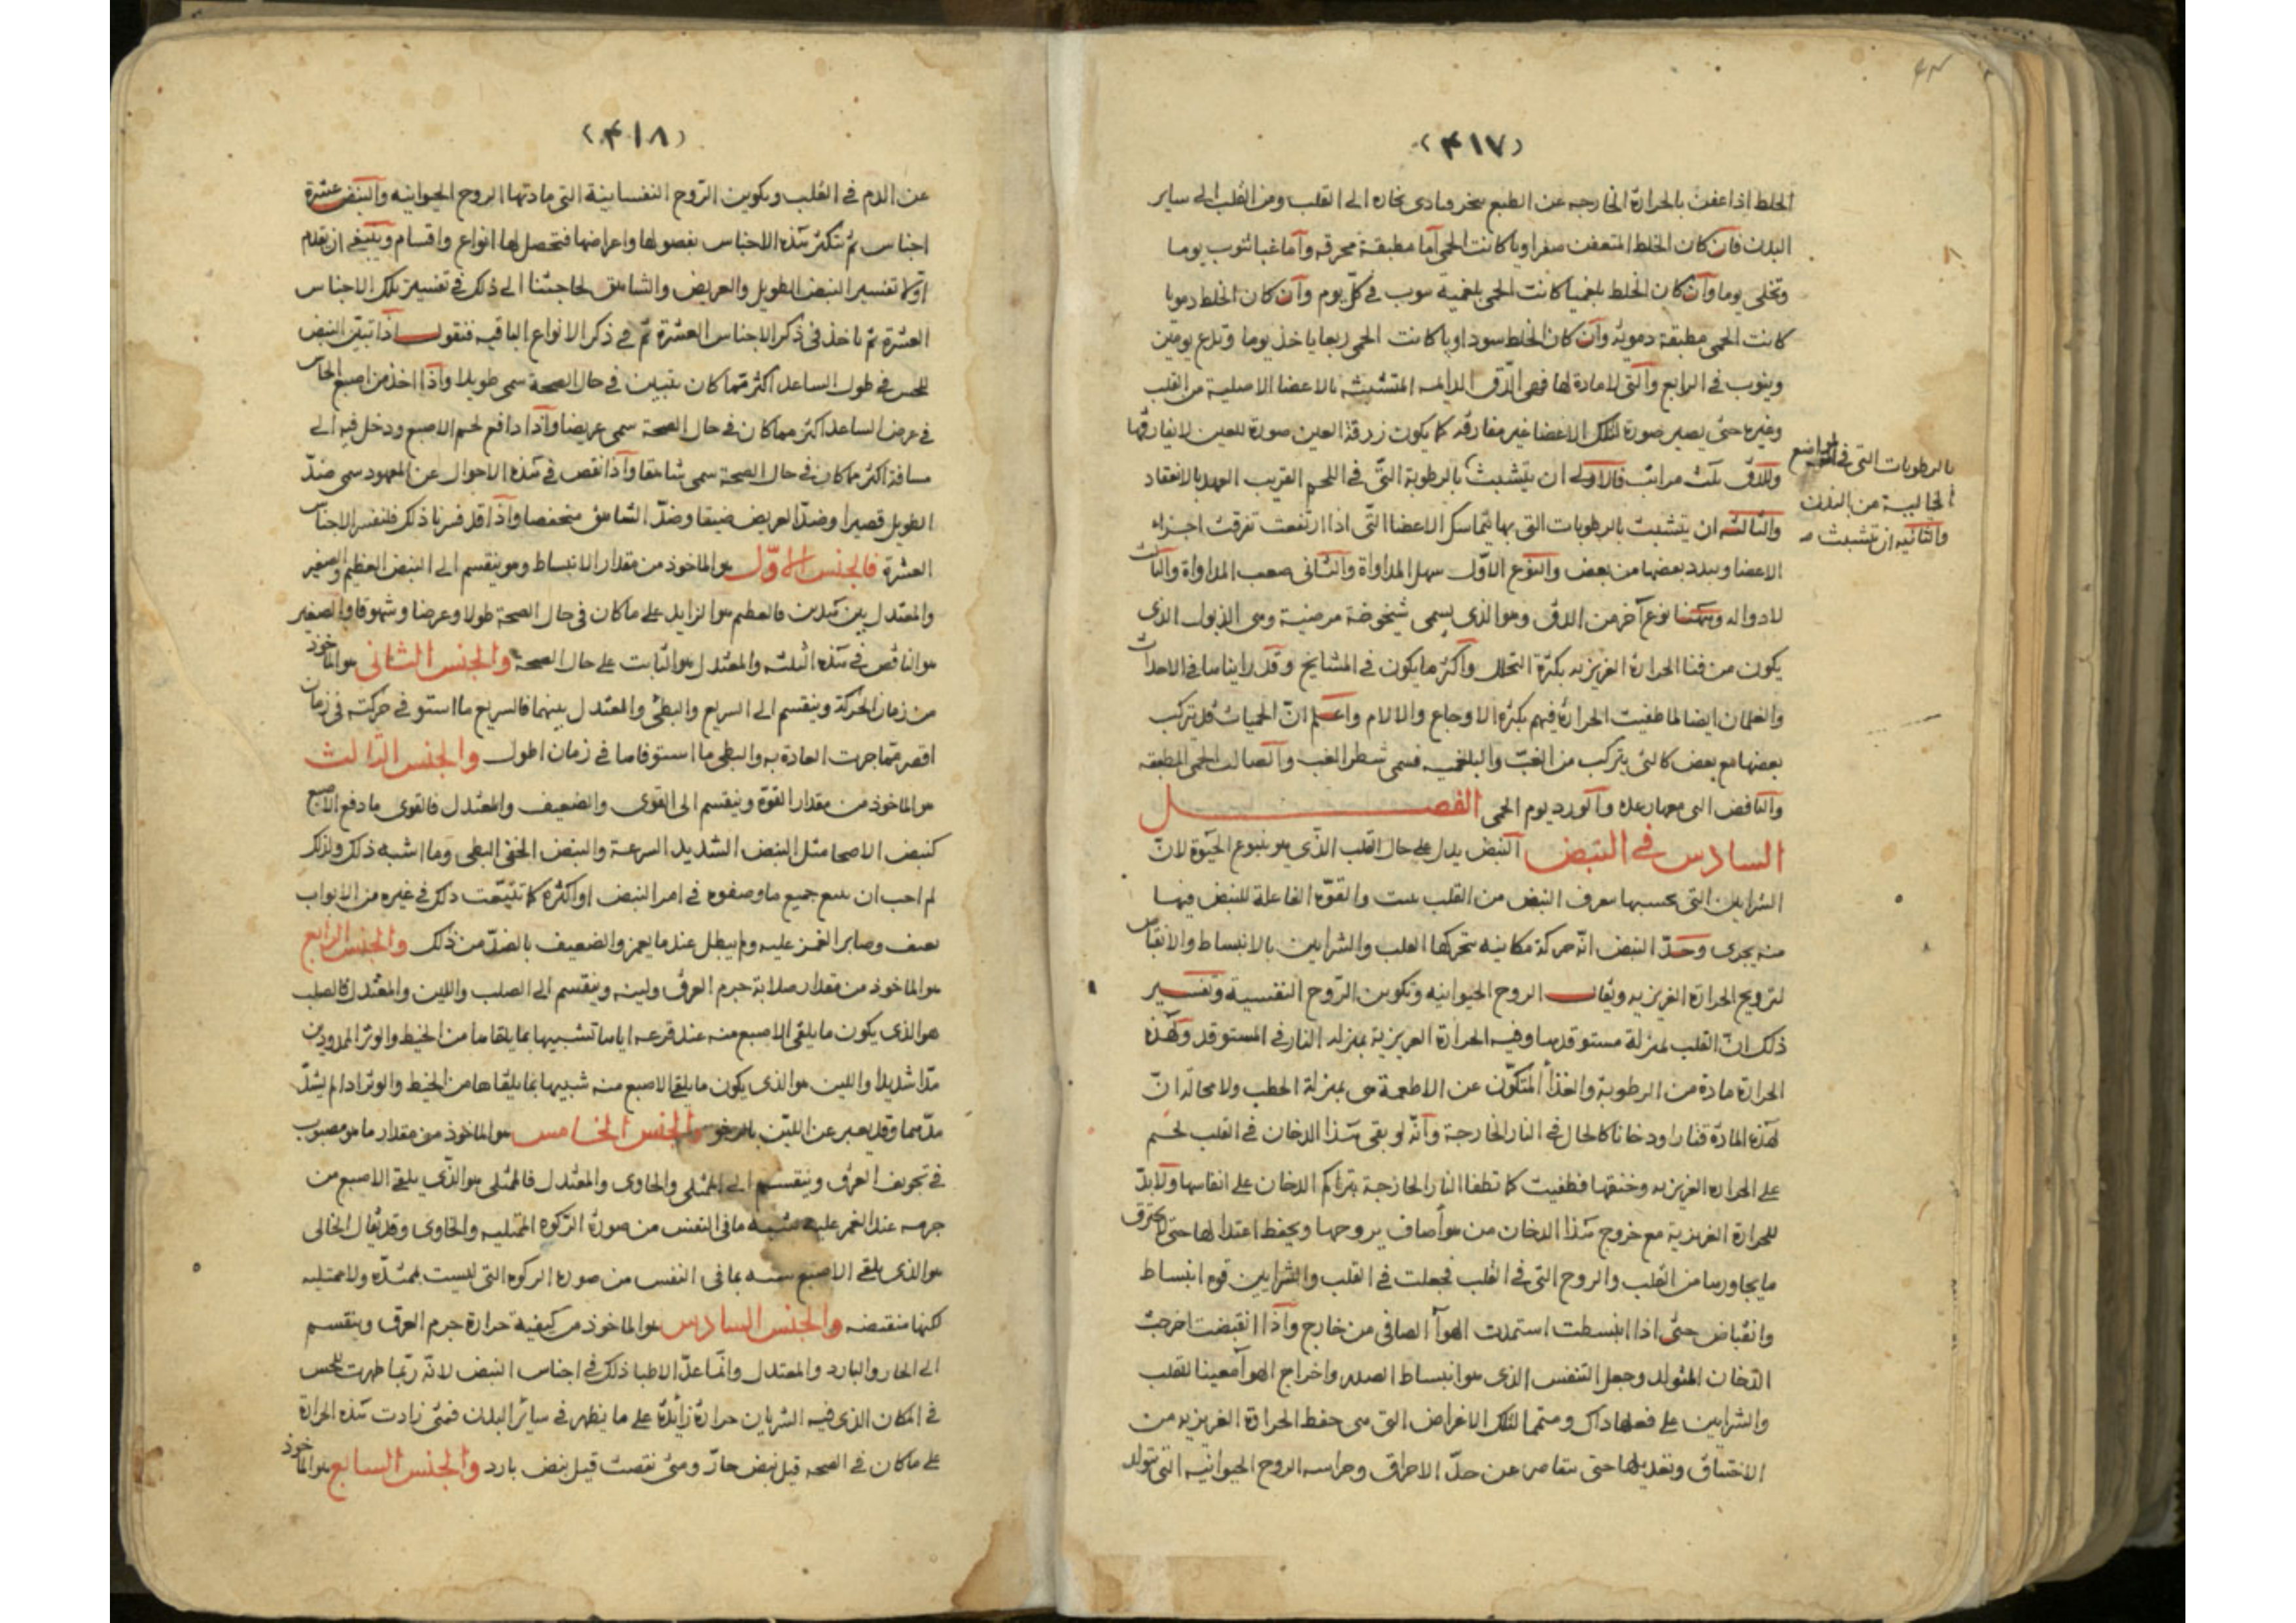 (٤١٧)
الخلط اذا عفن بالحرارة الخارجه عن الطبع سخن وبادى بخاره الى القلب ومن القلب الى ساير
البدن فان كان الخلط المتعفن صفراويا كانت الحمى اما مطبقة محرقه واما غبا تنوب يوما
وتخلى يوما وان كان الخلط بلغميا كانت الحمى بلغمية تنوب في كل يوم وان كان الخلط دمويا
كانت الحمى مطبقة دموية وان كان الخلط سوداويا كانت الحمى ربعا ياخذ يوما وتدع يومين
وينوب في الرابع والتى لا مادة لها فهى الدق الدايمه المتشبثه بالاعضا الاصلية من القلب
وغيره حتى يصير صورة لتلك الاعضا غير مفارقه كما يكون زرقة العين صورة للعين لا يفارقها
وللدق ثلث مراتب فالاولى ان يتشبث بالرطوبة التى في اللحم القريب العهد بالانعقاد
بالرطوبات التى في المواضع
الخالية من البدن
والثانيه ان تتشبث
والثالثه ان يتشبث بالرطوبات التى بها يتماسك الاعضا التى اذا ارتفعت تفرقت اجزاء
الاعضا وتبدد بعضها من بعض والنوع الاول سهل المداواة والثانى صعب المداواة والثالث
لا دوا له وههنا نوع آخر من الدق وهو الذى يسمى شيخوخة مرضية وهى الذبول الذى
يكون من فنا الحرارة الغريزيه بكثرة التحلل واكثر ما يكون في المشايخ وقد راينا ها في الاحداث
والغلمان ايضا لما طفيت الحرارة فيهم بكثرة الاوجاع والالام واعلم ان الحميات قد تركب
بعضها مع بعض كالتى يتركب من الغب والبلغميه فسمى شطر الغب والصالب الحمى المطبقه
والنافض التى معها رعده والورد يوم الحمى الفصل
السادس في النبض النبض يدل على حال القلب الذى هو ينبوع الحيوة لان
الشرايين التى بحسبها يعرف النبض من القلب نبتت والقوة الفاعلة للنبض فيها
منه يجرى وحد النبض انه حركة مكانيه تتحركها القلب والشرايين بالانبساط والانقباض
لترويح الحرارة الغريزيه ويقال الروح الحيوانيه وتكوين الروح النفسية وتفسير
ذلك ان القلب بمنزلة مستوقد ها وفيه الحرارة الغريزية بمنزله النار في المستوقد ولهذه
الحرارة مادة من الرطوبة والغذا المتكون عن الاطعمة هى بمنزلة الحطب ولا محالة ان
لهذه المادة قتارا ودخانا كالحال في النار الخارجة وانه لو بقى هذا الدخان في القلب لحم
على الحراره الغريزيه وخنقها فطفيت كما تطفا النار الخارجة بتراكم الدخان على انفاسها ولابد
للحرارة الغريزية مع خروج هذا الدخان من هوأ صاف يروحها ويحفظ اعتدالها حتى لا يحترق
ما يجاورها من القلب والروح التى في القلب فجعلت في القلب والشرايين قوه انبساط
وانقباض حتى اذا انبسطت استمدت الهوأ الصافى من خارج واذا انقبضت اخرجت
الدخان المتولد وجعل التنفس الذى هو انبساط الصدر واخراج الهوأ معينا للقلب
والشرايين على فعلها ذاك ومتمما لتلك الاغراض التى هى حفظ الحرارة الغريزيه من
الاختناق وتعديلها حتى يتقاصر عن حد الاحراق وحراسه الروح الحيوانيه التى يتولد
(٤١٨)
عن الدم في القلب وتكوين الروح النفسانية التى مادتها الروح الحيوانيه والنبض عشرة
اجناس ثم يتكثر هذه الاجناس بفصولها واعراضها فتحصل لها انواع واقسام وينبغى ان يقدم
اولا تفسير النبض الطويل والعريض والشاهق لحاجتنا الى ذلك في تفسير تلك الاجناس
العشرة ثم ناخذ في ذكر الاجناس العشرة ثم في ذكر الانواع الباقيه فنقول اذا تبين النبض
للحس في طول الساعد اكثر مما كان يتبين في حال الصحة سمى طويلا واذا اخذ من اصبع الحاس
في عرض الساعد اكثر مما كان في حال الصحة سمى عريضا واذا دافع لحم الاصبع ودخل فيه الى
مسافة اكثر مما كان في حال الصحة سمى شاهقا واذا نقص في هذه الاحوال عن المعهود سمى ضد
الطويل قصيرا وضد العريض ضيقا وضد الشاهق منخفضا واذا قد فسرنا ذلك فلنفسر الاجناس
العشرة فالجنس الاول هو الماخوذ من مقدار الانبساط وهو ينقسم الى النبض العظيم والصغير
والمعتدل بين هذين فالعظيم هو الزايد على ما كان في حال الصحة طولا وعرضا وشهوقا والصغير
هو الناقص في هذه الثلثه والمعتدل هو الثابت على حال الصحة والجنس الثانى هو الماخوذ
من زمان الحركة وينقسم الى السريع والبطى والمعتدل بينهما فالسريع ما استوفى حركته في زمان
اقصر مما جرت العادة به والبطى ما استوفاها في زمان اطول والجنس الثالث
هو الماخوذ من مقدار القوة وينقسم الى القوى والضعيف والمعتدل فالقوى ما دفع الاصبع
كنبض الاصحا مثل النبض الشديد السرعة والنبض الخفى البطى وما اشبه ذلك ولذلك
لم احب ان جميع ما وصفوه في امر النبض او اكثره كما تتبعت ذلك في غيره من الابواب
بعنف وصابر الغمز عليه ولم يبطل عند ما يغمز والضعيف بالضد من ذلك والجنس الرابع
هو الماخوذ من مقدار صلابة جرم العرق ولينه وينقسم الى الصلب واللين والمعتدل فالصلب
هو الذى يكون ما يلقى الاصبع منه عند قرعه اياها شبيها بما يلقاها من الخيط والوتر الممدودين
مدا شديدا واللين هو الذى يكون ما يلقى الاصبع منه شبيها بما يلقاها من الخيط والوتر اذا لم يشد
مدهما وقد يعبر عن اللين بالرخو والجنس الخامس هو الماخوذ من مقدار ما هو مصبوب
في تجويف العرق وينقسم الى الممتلى والخاوى والمعتدل فالممتلى هو الذى يلقى الاصبع من
جرمه عند الغمز عليه شبيه ما في النفس من صورة الزكوه الممتليه والخاوى وقد يقال الخالى
هو الذى يلقى الاصبع منه بما في النفس من صورة الركوه التى ليست بممتده ولا ممتليه
لكنها منقبضه والجنس السادس هو الماخوذ من كيفية حرارة جرم العرق وينقسم
الى الحار والبارد والمعتدل وانما عد الاطبا ذلك في اجناس النبض لانه ربما ظهرت للحس
في المكان الذى فيه الشريان حرارة زائدة على ما يظهر في سائر البدن فمتى زادت هذه الحرارة
على ما كان في الصحه قيل نبض حار ومتى نقصت قيل نبض بارد والجنس السابع هو الماخوذ